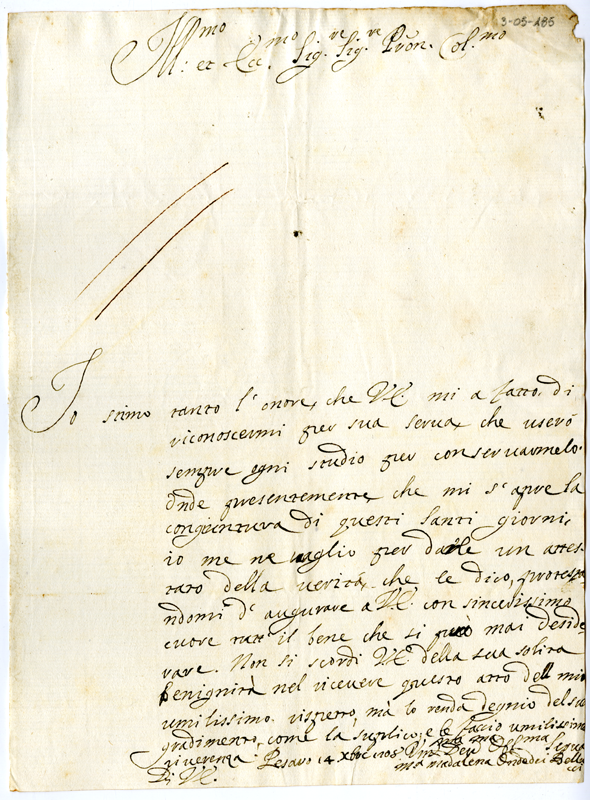 3-05-186
Ill:mo et Ecc.mo Sig.re Sig.re Prōn. Col.mo
Io stimo tanto l'onore, che V.E. mi a fatto, di
riconoscermi per sua serva, che userò
sempre ogni studio per conservarmelo.
Onde presentemente che mi s'apre la
congiuntura di questi santi giorni,
io me ne vaglio per darle un attes-
tato della verità che le dico, protesta
ndomi d'augurare a V.E. con sincerissimo
cuore tutt' il bene che si può mai deside
rare. Non si scordi V.E. della sua solita
benignità nel ricevere questo atto del mio
umilissimo rispetto, mà lo renda degnio del suo
gradimento, come la suplico, e le faccio umilissima
riverenza Pesaro 14 Xbre 1705
Di V.E.
Um. Dev. Serva
Madalena Ondedei Bello
cci